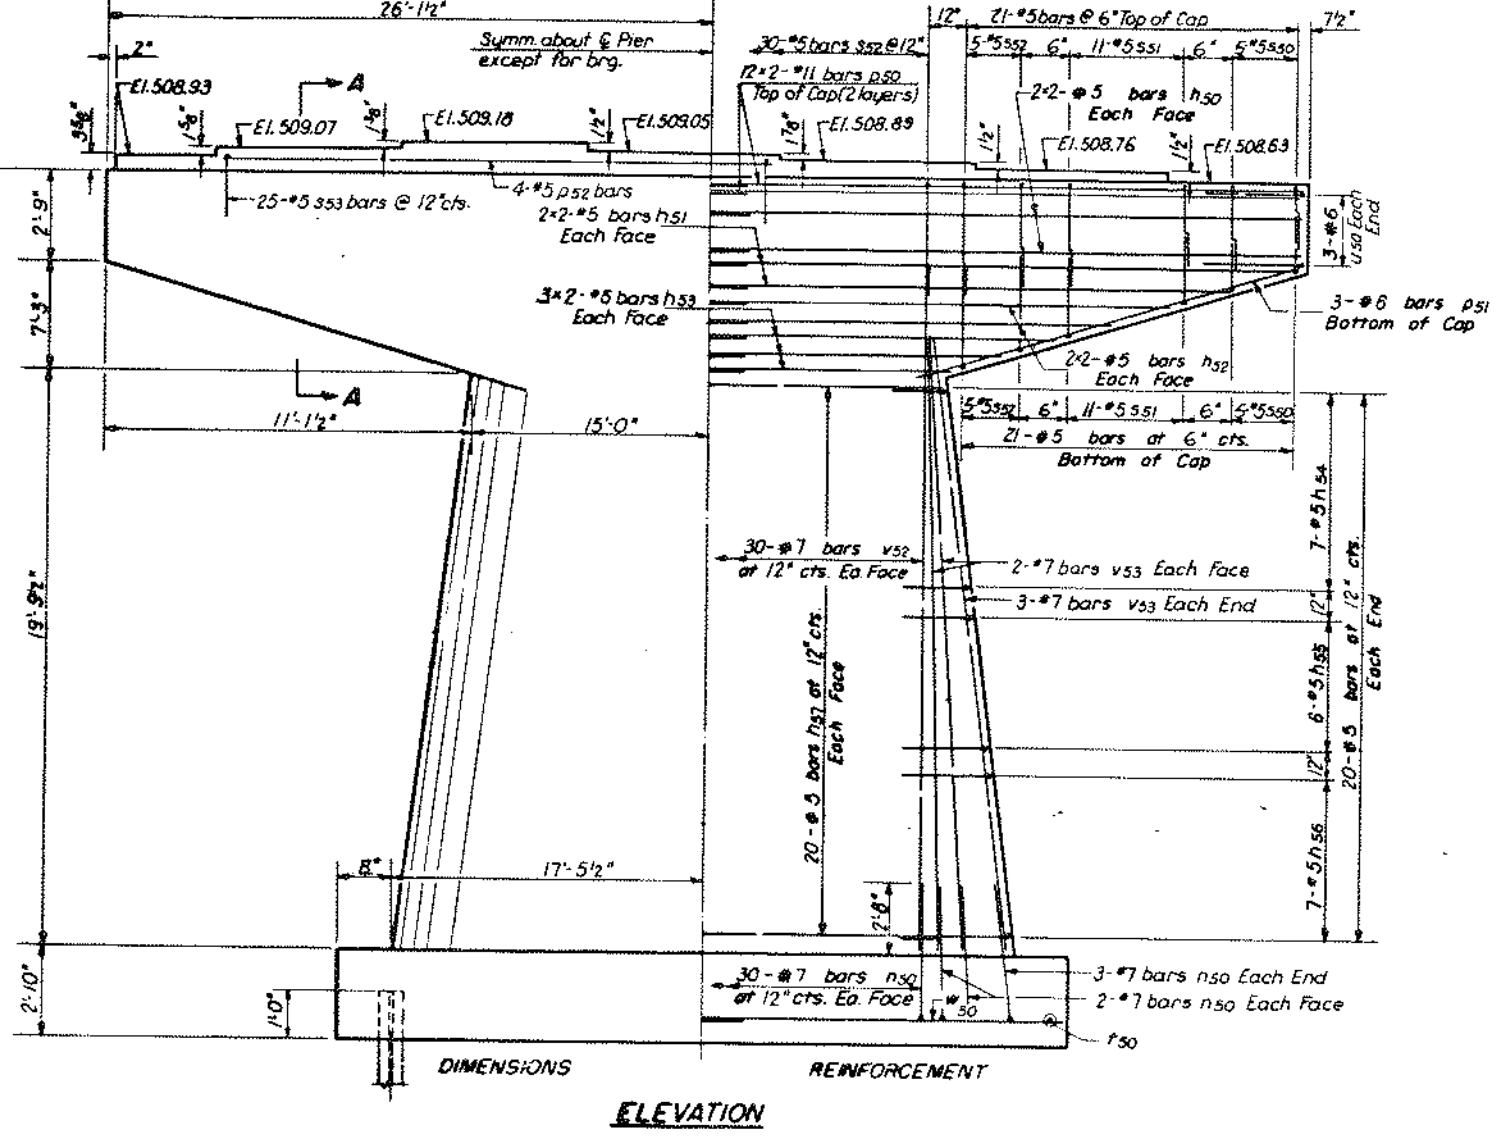 26'-1½"
12"
21-#5 bars @ 6" Top of Cap
7½"
Symm. about ℄ Pier
except for brg.
30-#5 bars s52 @ 12"
5-#5 s52
6"
11-#5 s51
6"
5-#5 s50
2"
El. 508.93
A
12×2-#11 bars p50
Top of Cap (2 layers)
2×2-#5 bars h50
Each Face
3⅝"
1⅝"
El. 509.07
1⅜"
El. 509.18
1½"
El. 509.05
1⅞"
El. 508.89
1½"
El. 508.76
1½"
El. 508.63
4-#5 p52 bars
25-#5 s53 bars @ 12" cts.
2×2-#5 bars h51
Each Face
2'-9"
3-#6
u50 Each
End
7'-3"
3×2-#5 bars h53
Each Face
3-#6 bars p51
Bottom of Cap
2×2-#5 bars h52
Each Face
A
11'-1½"
15'-0"
5-#5 s52
6"
11-#5 s51
6"
5-#5 s50
21-#5 bars at 6" cts.
Bottom of Cap
19'-9½"
30-#7 bars v52
at 12" cts. Ea. Face
2-#7 bars v53 Each Face
3-#7 bars v53 Each End
20-#5 bars h57 at 12" cts.
Each Face
7-#5 h54
12"
6-#5 h55
12"
7-#5 h56
20-#5 bars at 12" cts.
Each End
8"
17'-5½"
2'-8"
2'-10"
1'-0"
30-#7 bars n50
at 12" cts. Ea. Face
w50
3-#7 bars n50 Each End
2-#7 bars n50 Each Face
t50
DIMENSIONS
REINFORCEMENT
ELEVATION